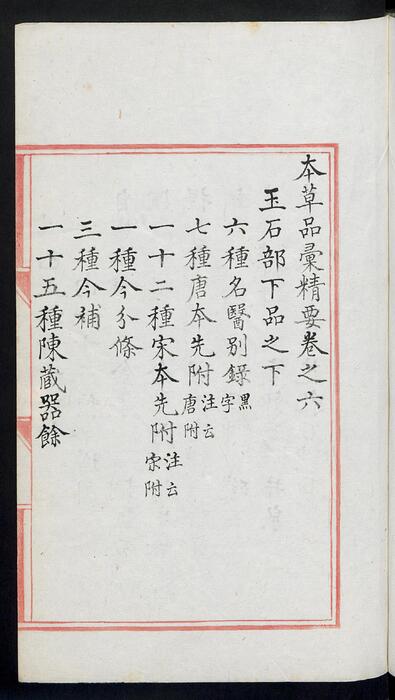 本草品彙精要卷之六
玉石部下品之下
六種名醫別錄黑字
七種唐本先附注云唐附
一十二種宋本先附注云宋附
一種今分條
三種今補
一十五種陳藏器餘